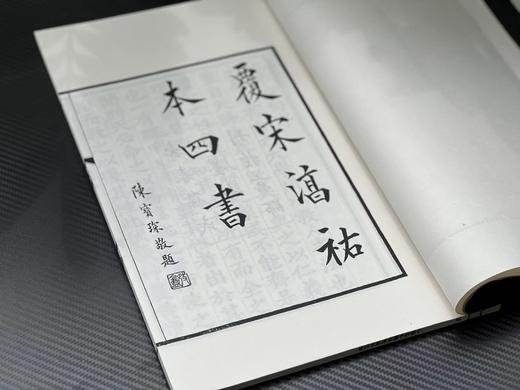 覆宋湻祐
本四書
陳寶琛敬題